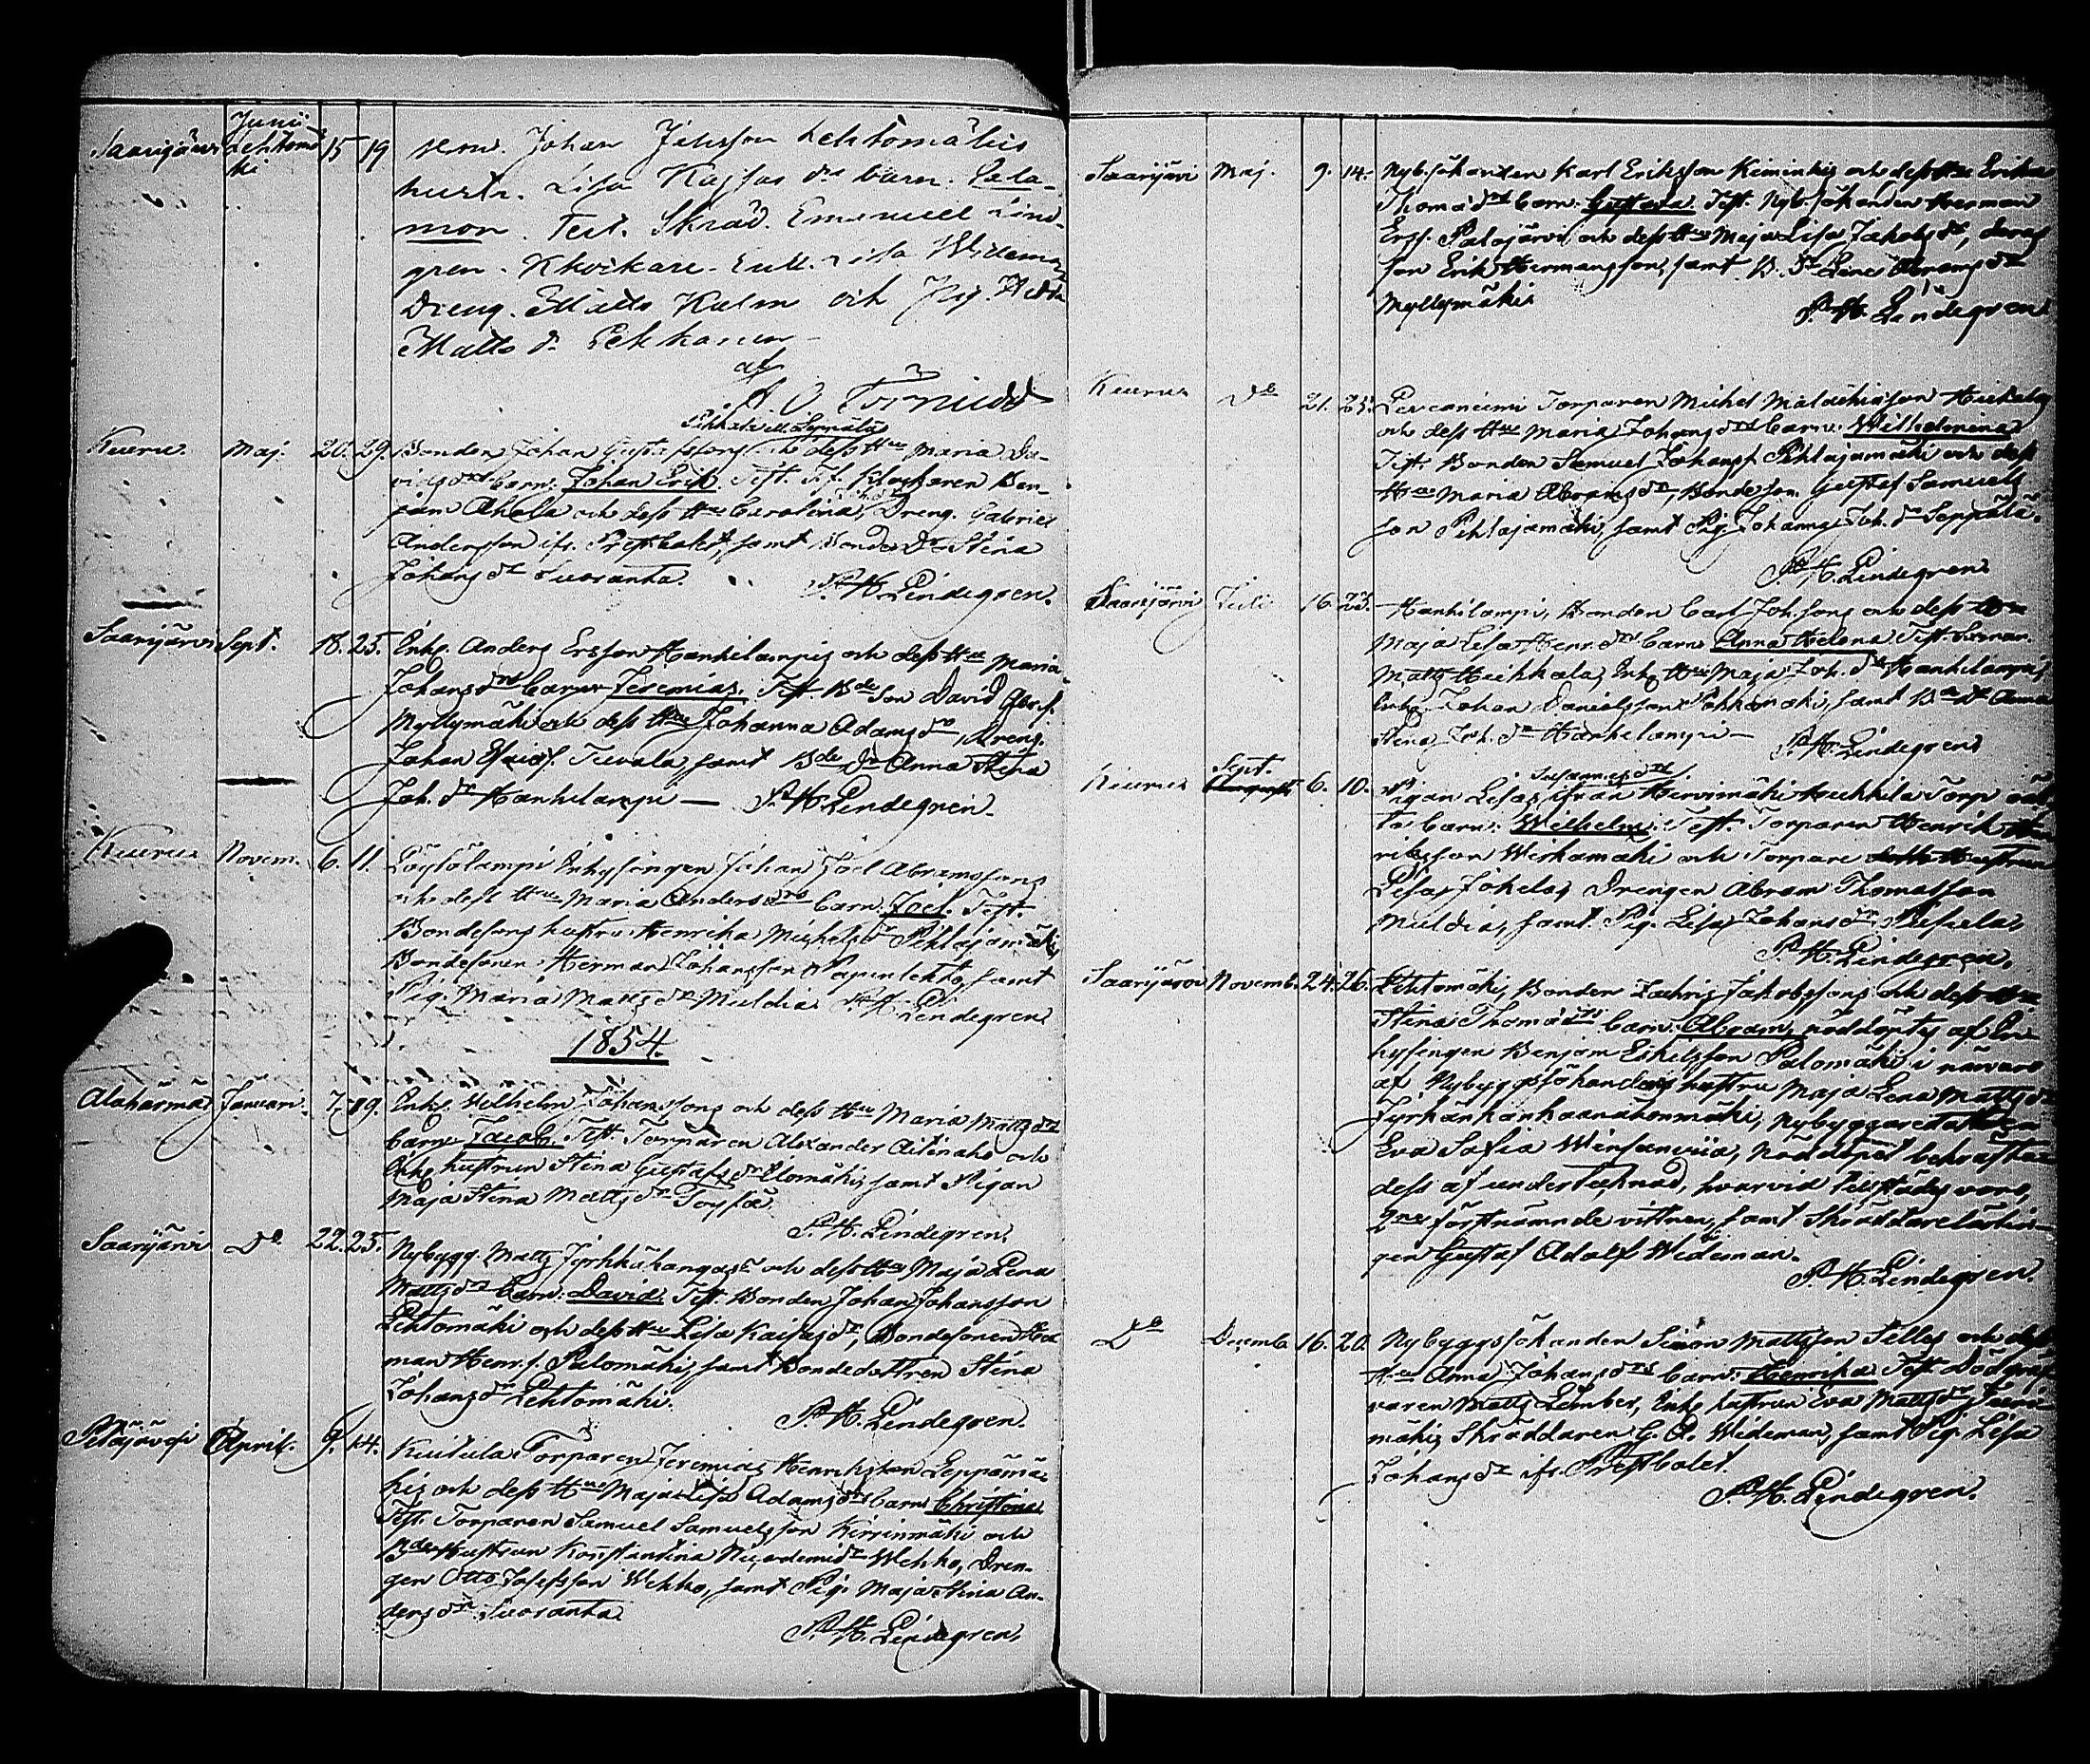 Junii
Saarijärvi Lehtomä 15 19 Johan Lehtomäkis
ki hustr. Lisa Kajsas dr barn. Sala-
mon. Test. Skräd. Emanuel Lind-
gren. Klockare Lisa Widema
Dreng. Matts Kalm och Pig. Hedda
Matts dr Pekkanen
af
A. O. Törnudd
Keuru. Maj. 20. 29. Bonden Johan Gustafssons och dess Hu Maria Da-
vidsdrs barn: Johan Erik. Test. T.f. Klockaren Ben-
jam Ahola och dess Hu Carolina, Dreng. Gabriel
Andersson ifr. Prestbolet, samt Bonded. Stina
Johansdr Suoranta.
P. H. Lindegren.
Saarijärvi Sept. 18. 25. Inhs. Anders Ersson Hankilampis och dess Hu Maria
Johansdrs barn Jeremias. Test. Bde Son David Abr.s.
Myllymäki och dess Hu Johanna Adamsdr, Dreng.
Johan Tievala samt Bde dr Anna Stina
Joh. dr Hankilampi — P. H. Lindegren.
Keuruu Novem. 6. 11. Löytölampi Inhysingen Johan Joel Abramssons
och dess Hu Maria Andersdrs barn. Joel. Test.
Bondesons hustru Henrika Michelsdr Pihlajamäki,
Bondesonen Herman Johansson Papinlehto, samt
Pig. Maria Mattsdr Muldia. P. H.
Lindegren
1854.
Alahärmä Januari. 7. 19. Inhs. Wilhelm Johanssons och dess Hu Maria Mattsdrs
barn Jacob. Test. Torparen Alexander Aitinaho och
Inhs hustrun Stina Gustafsdr Ulomäki, samt Pigan
Maja Stina Mattsdr Töysä.
P. H. Lindegren.
Saarijärvi Do 22. 25. Nybygg. Matts Jyrkkäkangas och dess Hu Maja Lena
Mattsdrs barn: David. Test. Bonden Johan Johansson
Lehtomäki och dess Hu Lisa Kaisasdr, Bondesonen Her
man Henr.s. Palomäki, samt Bondedottren Stina
Johansdr Lehtomäki.
P. H. Lindegren.
Pelajävesi April. 9. 14. Kuitula Torparen Jeremias Henriksson Leppämä-
kis och dess Hu Maja Lisa Adamsdrs barn Christina
Test. Torparen Samuel Samuelsson Kirrinmäki och
Bde Hustrun Konstantina Nicodemidr Wehko, Dren-
gen Otto Josefsson Wehko, samt Pig. Maja Stina An-
dersdr Suoranta.
P. H. Lindegren.
Saarijärvi Maj. 9. 14. Nyb. sökanden Karl Eriksson Kiminkis och dess Hu Erika
Thomädrs barn. Gustava. Test. Nyb. sökanden Herman
Ers.s. Palojärvi och dess Hu Maja Lisa Jakobsdr, deras
son Erik Hermansson, samt B. dr Lena Abramsdr
Myllymäki.
P. H. Lindegren.
Keuruu Do 21. 25. Torparen Michel Malachiasson
och dess Hu Maria Johansdrs barn: Wilhelmina
Test. Bonden Samuel Johans.s. Pihlajamäki och dess
Hu Maria Abramsdr, Bondeson Gustaf Samuels
son Pihlajamäki, samt Pig. Johanna Joh. dr Seppälä.
P. H. Lindegren
Saarijärvi Juli 16. 23. Hankilampi, Bonden Carl Joh.sons och dess Hu
Maja Lisa Henr. drs barn Anna Helena Test.
Matts Heikkala, Inhs Hu Maja Joh. dr Hankilampi,
Inhs Johan Danielsson samt B. dr Anna
Stina Joh. dr Hankilampi —
P. H. Lindegren
Sept.
Keuruu Augusti 6. 10. Pigan Lisas ifrån Torp oäk
ta barn: Wilhelm. Test. Torparen Henrik Hen
riksson Wirkamäki och Torpare
Lisa Jokela, Drengen Abram Thomasson
Muldia, samt Pig. Lisa Johansdr
P. H. Lindegren.
Saarijärvi Novemb. 24. 26. Lehtomäki, Bonden Zachris Jakobssons och dess Hu
Stina Thomädrs barn. Abram, nöddöpts af In-
hysingen Benjam Eskelsson Palomäki i närvaro
af Nybyggssökandens hustru Maja Lena Mattsdr
Nybyggare
Eva Sofia Nöddopet bekräfta
des af undertecknad, hvarvid tillstädes voro,
2ne förstnämnde vittnen, samt Skräddarelärlin-
gen Gustaf Adolf Wideman.
P. H. Lindegren.
Do Decemb. 16. 20. Nybyggssökanden Simon Mattsson Selles och dess
Hu Anna Johansdrs barn. Henrika Test. Dödgräf
varen Matts Lember, Inhs hustrun Eva Mattsdr
mäki, Skräddaren G. A. Wideman, samt Pig. Lisa
Johansdr ifr. Prestbolet.
P. H. Lindegren.